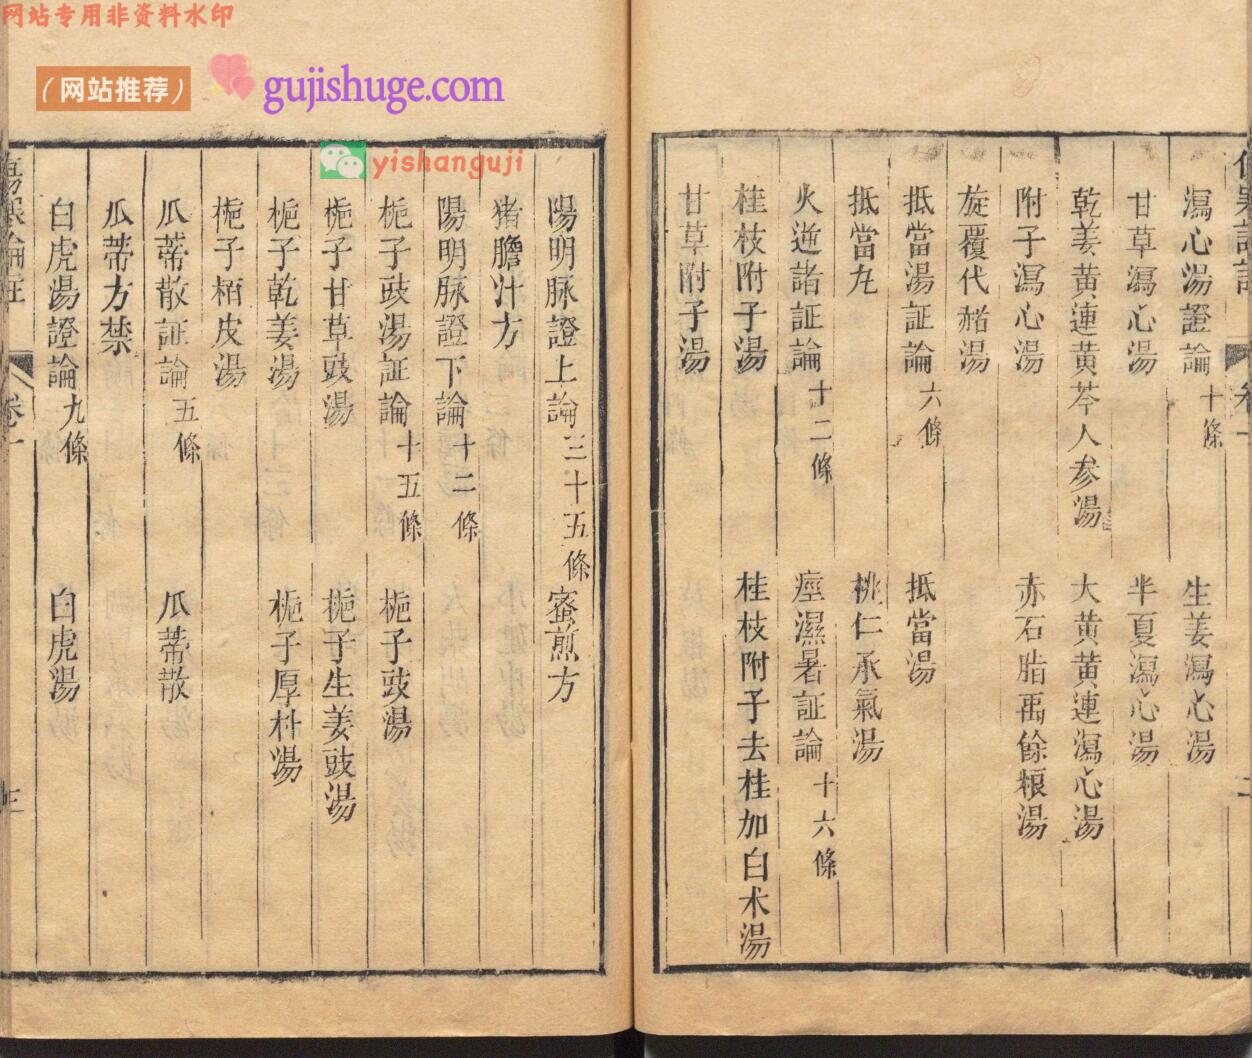 网站专用非资料水印
（网站推荐）
gujishuge.com
yishanguji
瀉心湯證論十條 生姜瀉心湯
甘草瀉心湯 半夏瀉心湯
乾姜黄連黄芩人参湯 大黄黄連瀉心湯
附子瀉心湯 赤石脂禹餘粮湯
旋覆代赭湯
抵當湯証論六條 抵當湯
抵當九 桃仁承氣湯
火逆諸証論十二條 痙濕暑証論十六條
桂枝附子湯 桂枝附子去桂加白朮湯
甘草附子湯
陽明脉證上論三十五條 蜜煎方
猪膽汁方
陽明脉證下論十二條
梔子豉湯証論十五條 梔子豉湯
梔子甘草豉湯 梔子生姜豉湯
梔子乾姜湯 梔子厚朴湯
梔子栢皮湯
瓜蒂散証論五條 瓜蒂散
瓜蒂方禁
白虎湯證論九條 白虎湯
卷一
三